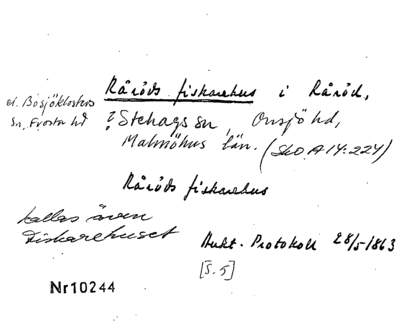 Råröds fiskarehus i Råröd,
el. Bosjöklosters
Sn, Frosta hd
i Stehags sn, Onsjö hd,
Malmöhus län. (SkO A14:224)
Råröds fiskarehus
kallas även
Fiskarehuset
Aukt. Protokoll 28/5-1863
[S. 5]
Nr10244